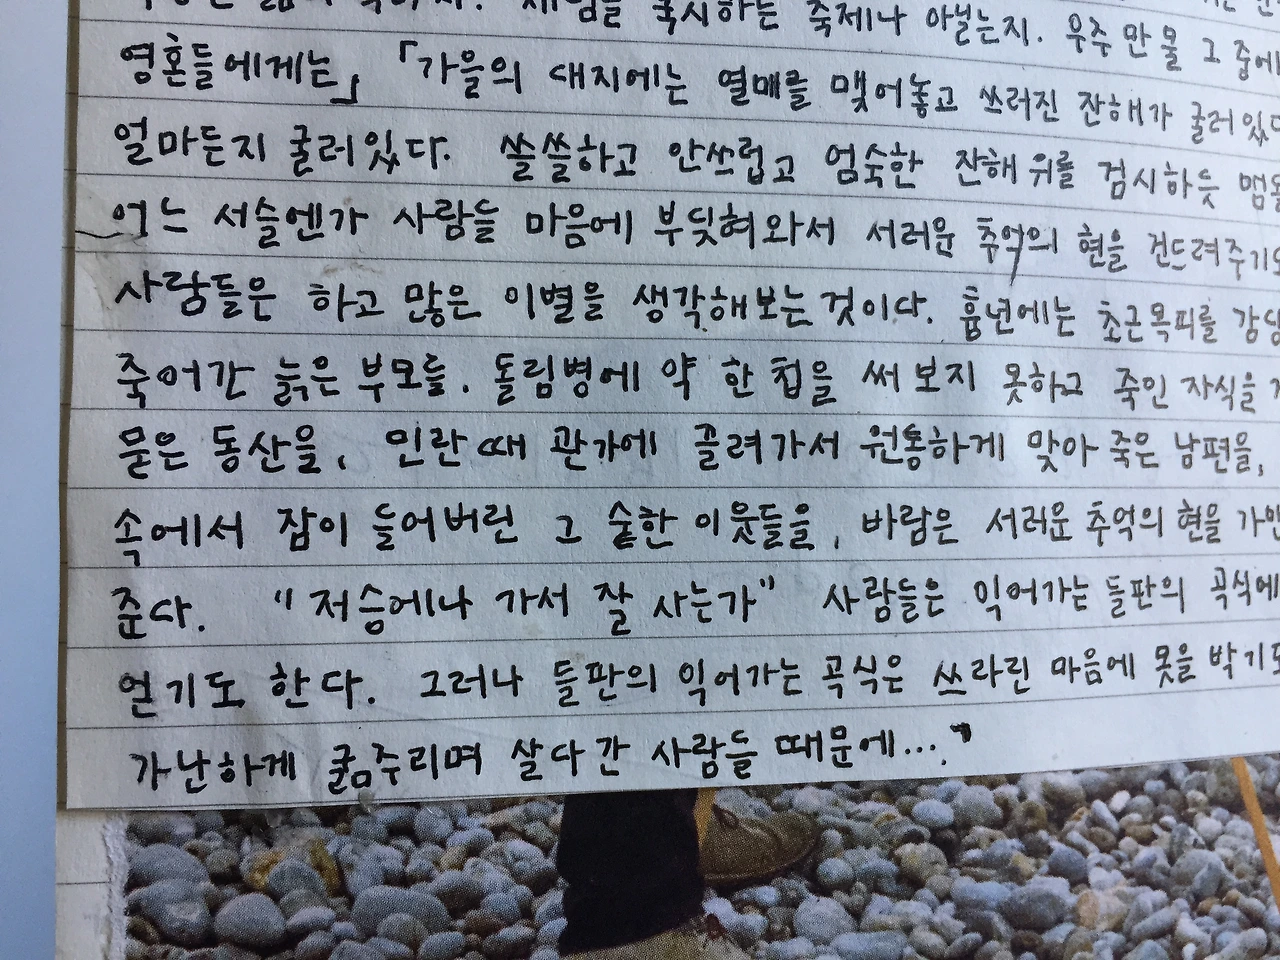 국시하는 축제나 아닐는지. 우주 만물 그 중에
영혼들에게는」 「가을의 대지에는 열매를 맺어놓고 쓰러진 잔해가 굴러있다
얼마든지 굴러있다. 쓸쓸하고 안쓰럽고 엄숙한 잔해 위를 검시하듯 맴돌
어느 서슬엔가 사람들 마음에 부딪혀와서 서러운 추억의 현을 건드려주기도
사람들은 하고 많은 이별을 생각해보는 것이다. 흉년에는 초근목피를 감당
죽어간 늙은 부모를. 돌림병에 약 한 첩을 써 보지 못하고 죽인 자식을
묻은 동산을, 민란때 관가에 끌려가서 원통하게 맞아 죽은 남편을,
속에서 잠이 들어버린 그 숱한 이웃들을, 바람은 서러운 추억의 현을 가만
준다. "저승에나 가서 잘 사는가" 사람들은 익어가는 들판의 곡식에
얻기도 한다. 그러나 들판의 익어가는 곡식은 쓰라린 마음에 못을 박기도
가난하게 굶주리며 살다 간 사람들 때문에..."